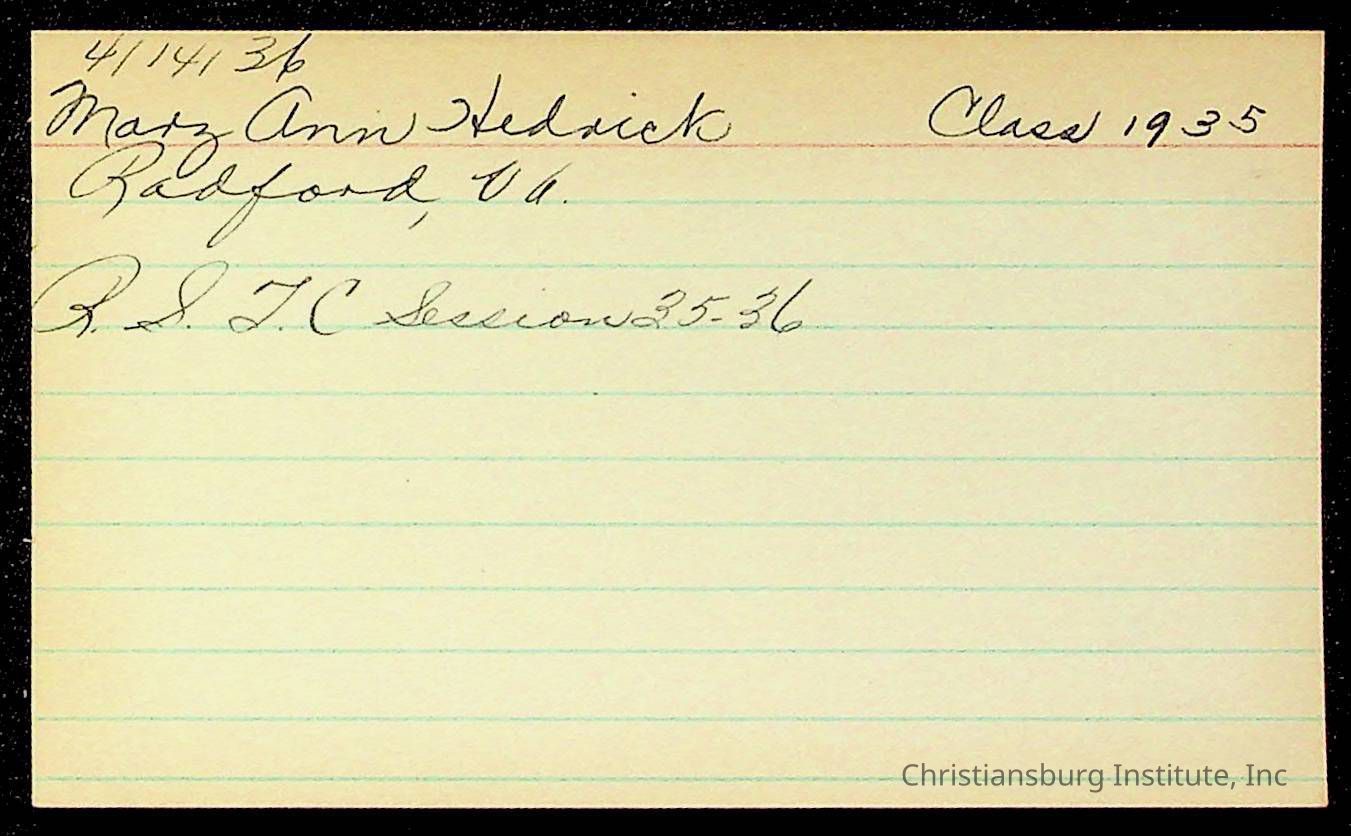 4/14/36
Mary Ann Hedrick Class 1935
Radford, Va.
R. S. T. C Session 35-36
Christiansburg Institute, Inc